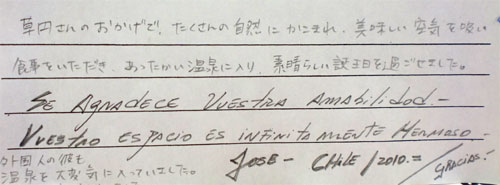 草円さんのおかげで、たくさんの自然にかこまれ、美味しい空気を吸い
食事をいただき、あったかい温泉に入り、素晴らしい誕生日を過ごせました。
SE AGRADECE VUESTRA AMABILIDAD.-
VUESTRO ESPACIO ES INFINITAMENTE HERMOSO.-
外国人の彼も
温泉を大変気に入っていました。
JOSE- CHILE/2010.= /GRACIAS.